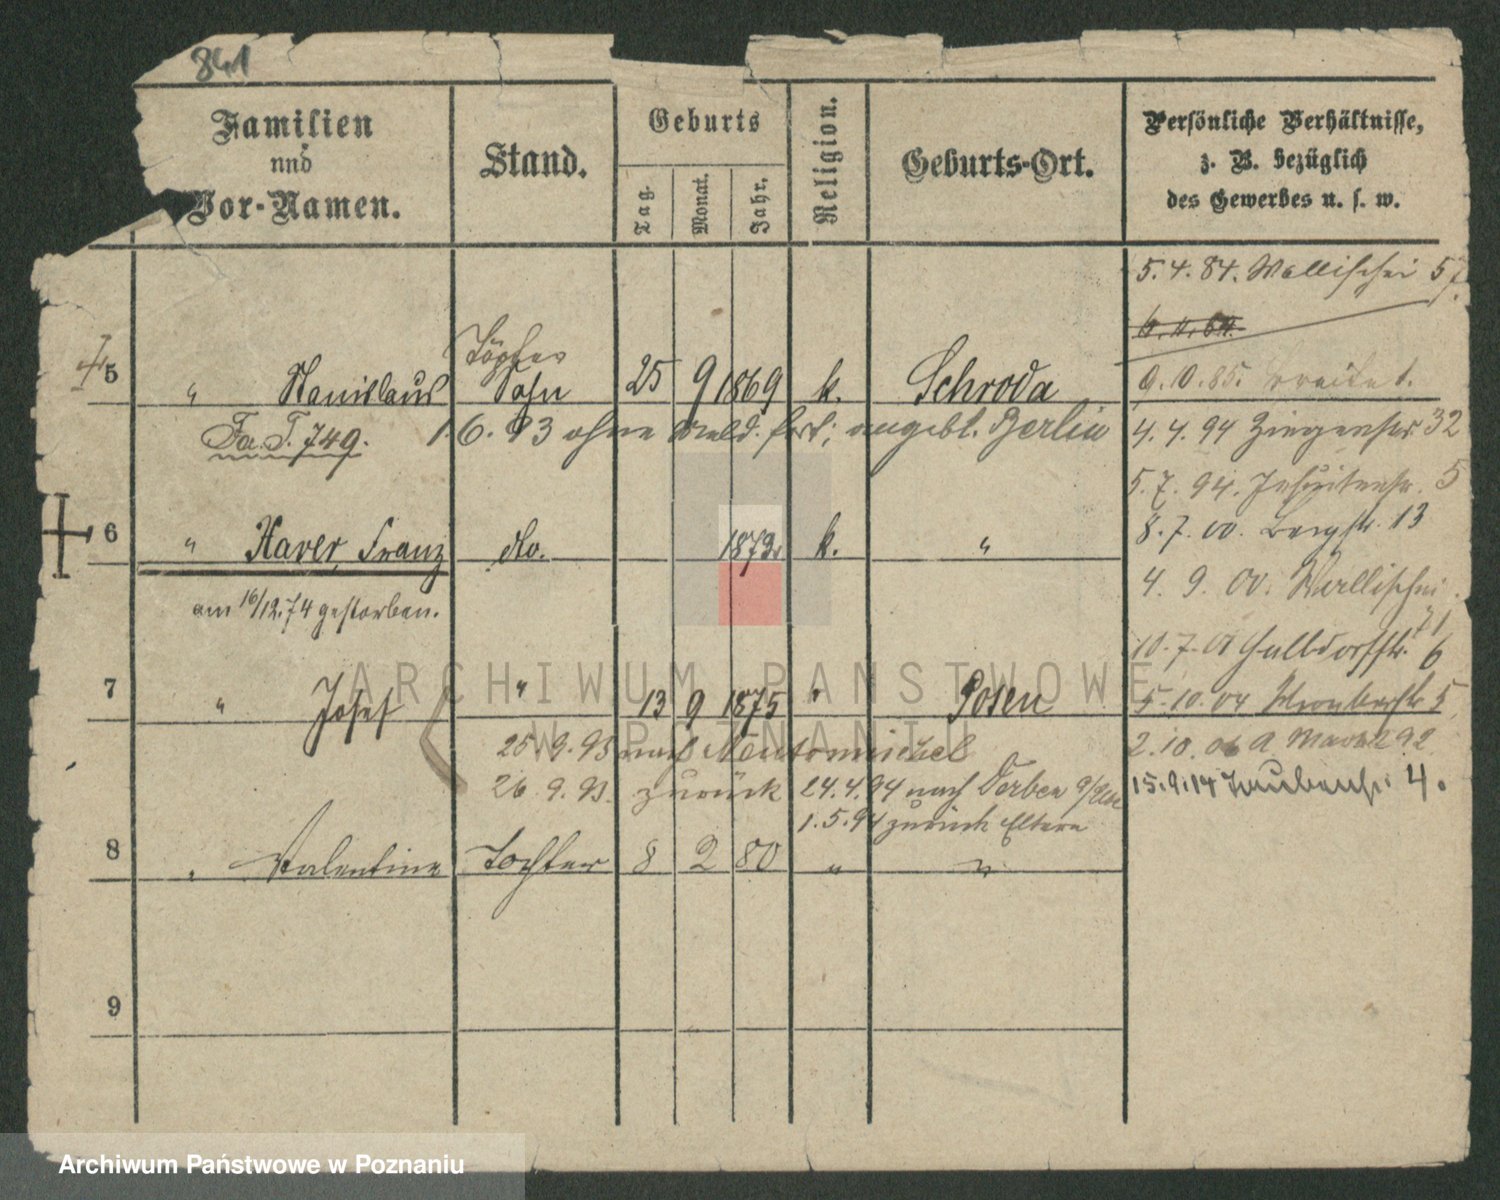 841
Familien
und
Vor-Namen.
Stand.
Geburts
Tag.
Monat.
Jahr.
Religion.
Geburts-Ort.
Persönliche Verhältnisse,
z. B. bezüglich
des Gewerbes u. s. w.
5.4.84. Wallischei 5
6.4.84.
Töpfer
5 " Stanislaus Sohn 25 9 1869 k. Schroda
9.10.85. Breitest.
Fa. T. 749. 1.6.93 ohne Meld. fort; angebl. Berlin
4.4.94 Ziegenstr. 32
5.7.94. Jesuitenstr. 5
6 " Xaver, Franz do. 1872. k. "
8.7.00. Bergstr. 13
am 16/12.74 gestorben.
4.9.00. Wallischei
71
10.7.01 Halldorfstr. 6
7 " Josef " 13 9 1875 " Posen
5.10.04 Kronkerstr 5
25.9.93 nach Neutomischel
2.10.06 A Markt 92
26.9.93. zurück 24.4.94 nach
15.9.14 Taubenstr. 4.
1.5.94 zurück Eltern
8 " Valentine Tochter 8 2 80 " "
9
ARCHIWUM PAŃSTWOWE
W POZNANIU
Archiwum Państwowe w Poznaniu